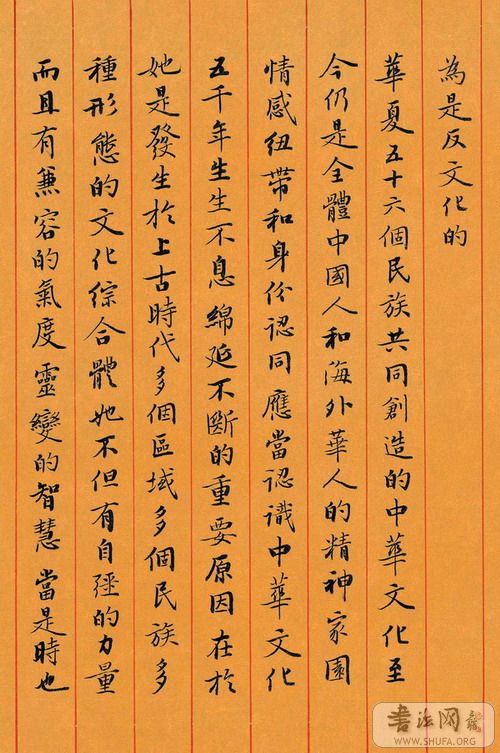 為是反文化的
華夏五十六個民族共同創造的中華文化至
今仍是全體中國人和海外華人的精神家園
情感紐帶和身份認同應當認識中華文化
五千年生生不息綿延不斷的重要原因在於
她是發生於上古時代多個區域多個民族多
種形態的文化綜合體她不但有自強的力量
而且有兼容的氣度靈變的智慧當是時也
書法网
WWW.SHUFA.ORG